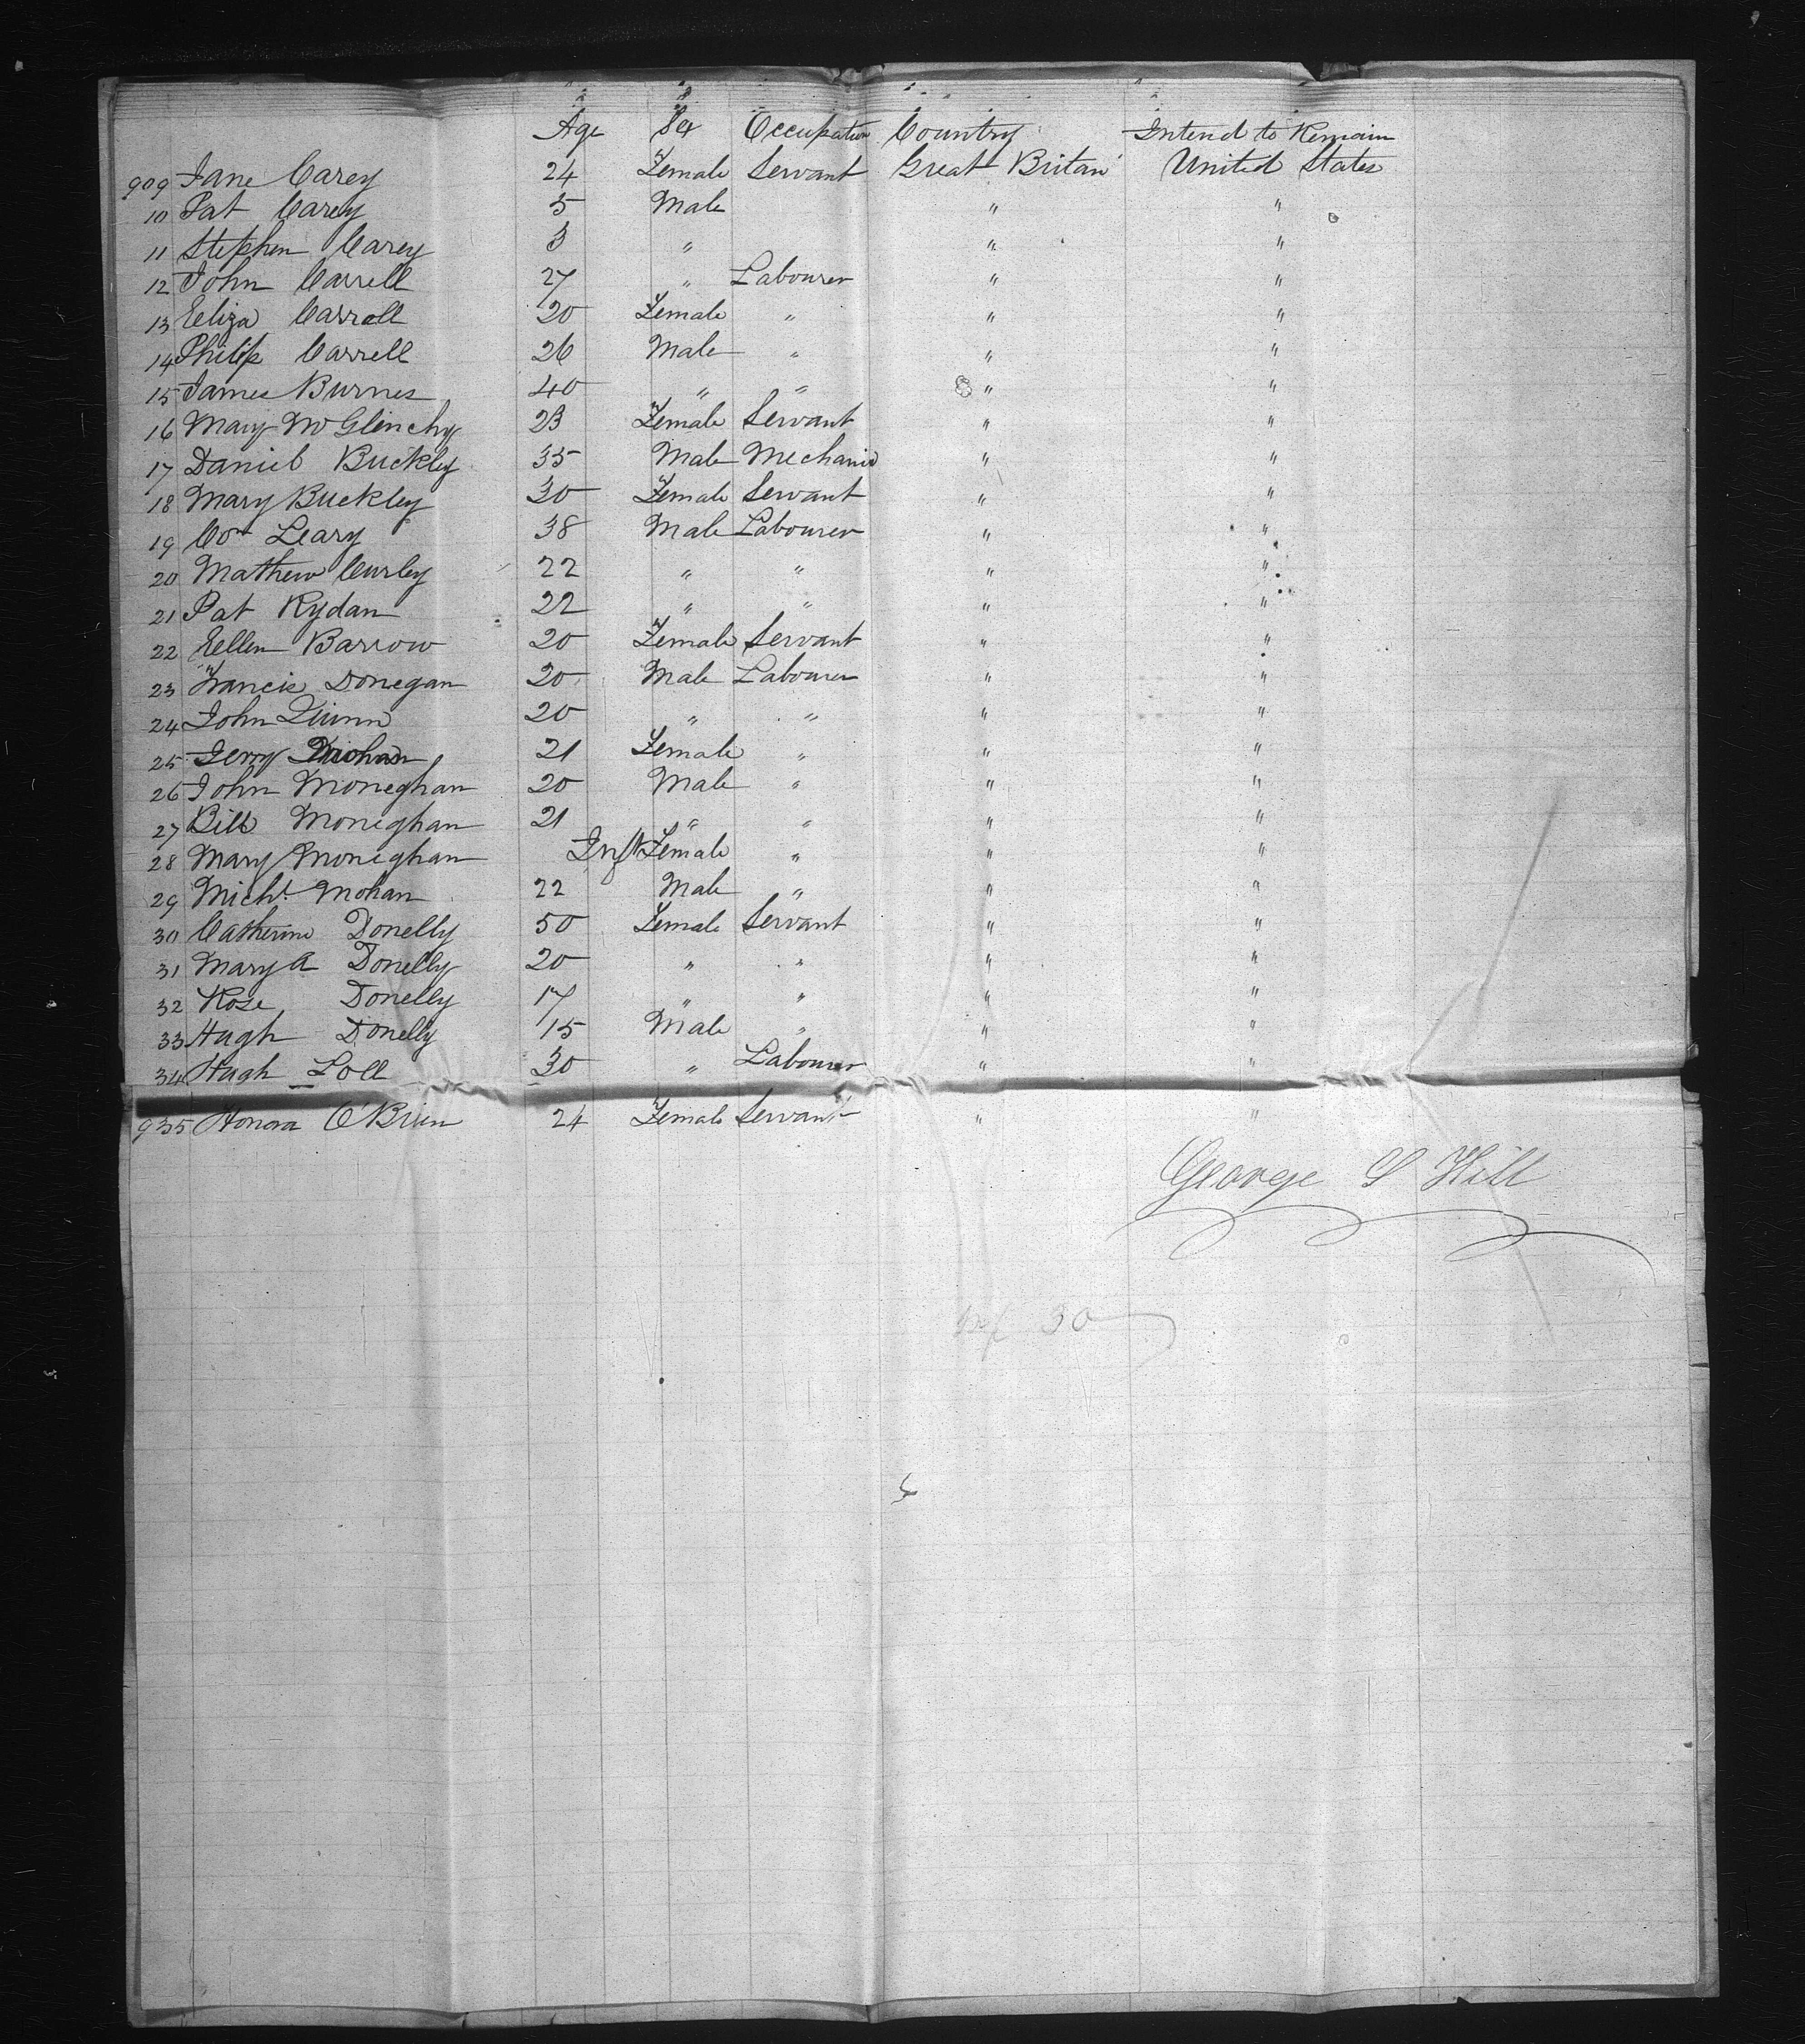 Age Sex Occupation Country Intend to Remain
909 Jane Carey 24 Female Servant Great Britan United States
10 Pat Carey 5 Male " "
11 Stephen Carey 3 " " "
12 John Carrell 27 " Labourer " "
13 Eliza Carroll 20 Female " " "
14 Philip Carrell 26 Male " " "
15 James Burnes 40 " " " "
16 Mary McGlinchy 23 Female Servant " "
17 Daniel Buckley 35 Male Mechanic " "
18 Mary Buckley 30 Female Servant " "
19 Cor Leary 38 Male Labourer " "
20 Mathew Curley 22 " " " "
21 Pat Rydan 22 " " " "
22 Eellen Barrow 20 Female Servant " "
23 Francis Donegan 20 Male Labourer " "
24 John Quinn 20 " " " "
25 Jerry 21 Female " " "
26 John Moneghan 20 Male " " "
27 Bill Moneghan 21 " " " "
28 Mary Moneghan Inft Female " " "
29 Michl. Mohan 22 Male " " "
30 Catherine Donelly 50 Female Servant " "
31 Mary A Donelly 20 " " " "
32 Rose Donelly 17 " " " "
33 Hugh Donelly 15 Male " " "
34 Hugh Loll 30 " Labourer " "
935 Honora O'Brien 24 Female Servant " "
George S Hill
30